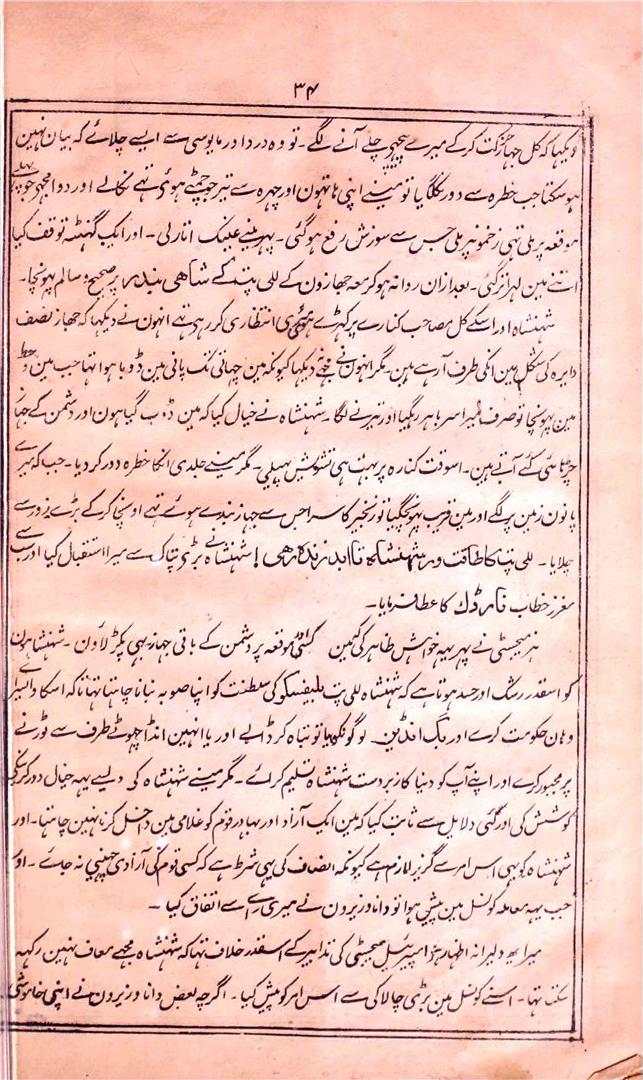 ۳۴
دیکہا کہ کل جہاز حرکت کرکے میرے پیچھے چلے آنے لگے۔ تو وہ درد اور مایوسی سے ایسے چلائے کہ بیان نہین
ہو سکتا جب خطرہ سے دور نکل گیا تو مینے اپنی ہاتہون اور چہرہ سے تیر جو چبھے ہوئی تہے نکالے اور دوا مجہے جو پہلے
موقعہ پر ملی تہی زخمونپر ملی جس سے سورش رفع ہو گئی۔ پہر مینے عینک اتار لی۔ اور ایک گہنٹہ توقف کیا
اتنے مین لہر اتر گئی۔ بعد ازان روانہ ہو کر معہ جہازون کے للی پٹ کے شاہی بندر پر صحیح و سالم پہونچا۔
شہنشاہ اور اسکے کل مصاحب کنارے پر کہڑے ہوئی میری انتظاری کر رہی تہے انہون نے دیکہا کہ جہاز نصف
دایرہ کی شکل مین انکی طرف آ رہے ہین۔ مگر انہون نے مجہے نہ دیکہا کیونکہ مین چہاتی تک پانی مین ڈوبا ہوا تہا جب مین وسط
مین پہونچا تو صرف میرا سر باہر رہگیا اور تیرنے لگا۔ شہنشاہ نے خیال کیا کہ مین ڈوب گیا ہون اور دشمن کے جہاز
چڑہائی کے آتے ہین۔ اسوقت کنارہ پر بہت ہی تشویش پہیلی۔ مگر مینے جلدی انکا خطرہ دور کر دیا۔ جب کہ میرے
پانون زمین پر لگے اور مین قریب پہونچگیا تو زنجیر کا سرا جس سے جہاز بندے ہوئے تہے اونچا کرکے بڑے زور سے
چلایا۔ للی پٹ کا طاقت ور شہنشاہ تا ابد زندہ رہی! شہنشاہ نے بڑی تپاک سے میرا استقبال کیا اور سب سے
معزز خطاب نارڈک کا عطا فرمایا۔
ہز میجسٹی نے پہر یہہ خواہش ظاہر کی کہ مین کسی موقعہ پر دشمن کے باقی جہاز بہی پکڑ لاؤن۔ شہنشاہون
کو اسقدر رشک اور حسد ہوتا ہے کہ شہنشاہ للی پٹ بلیفسکو کی سلطنت کو اپنا صوبہ بنانا چاہتا تہا تاکہ اسکا وایسرائے
وہان حکومت کرے اور بگ انڈین لوگونکو یا تو تباہ کر ڈالے اور یا انہین انڈا چہوٹے طرف سے توڑنے
پر مجبور کرے اور اپنے آپ کو دنیا کا زبردست شہنشاہ تسلیم کرائے۔ مگر مینے شہنشاہ کی دلسے یہہ خیال دور کرنیکی
کوشش کی اور کئی دلایل سے ثابت کیا کہ مین ایک آزاد اور بہادر قوم کو غلامی مین داخل کرنا نہین چاہتا۔ اور
شہنشاہ کو بہی اس امر سے گریز لازم ہے کیونکہ انصاف کی یہی شرط ہے کہ کسی قوم کی آزادی چہینی نہ جائے۔ اور
جب یہہ معاملہ کونسل مین پیش ہوا تو دانا وزیرون نے میری رائے سے اتفاق کیا۔
میرا یہ دلیرانہ اظہار ہز امپیریل میجسٹی کی تدابیر کے اسقدر خلاف تہا کہ شہنشاہ مجہے معاف نہین رکہہ
سکتا تہا۔ اسنے کونسل مین بڑی چالاکی سے اس امر کو پیش کیا۔ اگرچہ بعض دانا وزیرون نے اپنی خاموشی